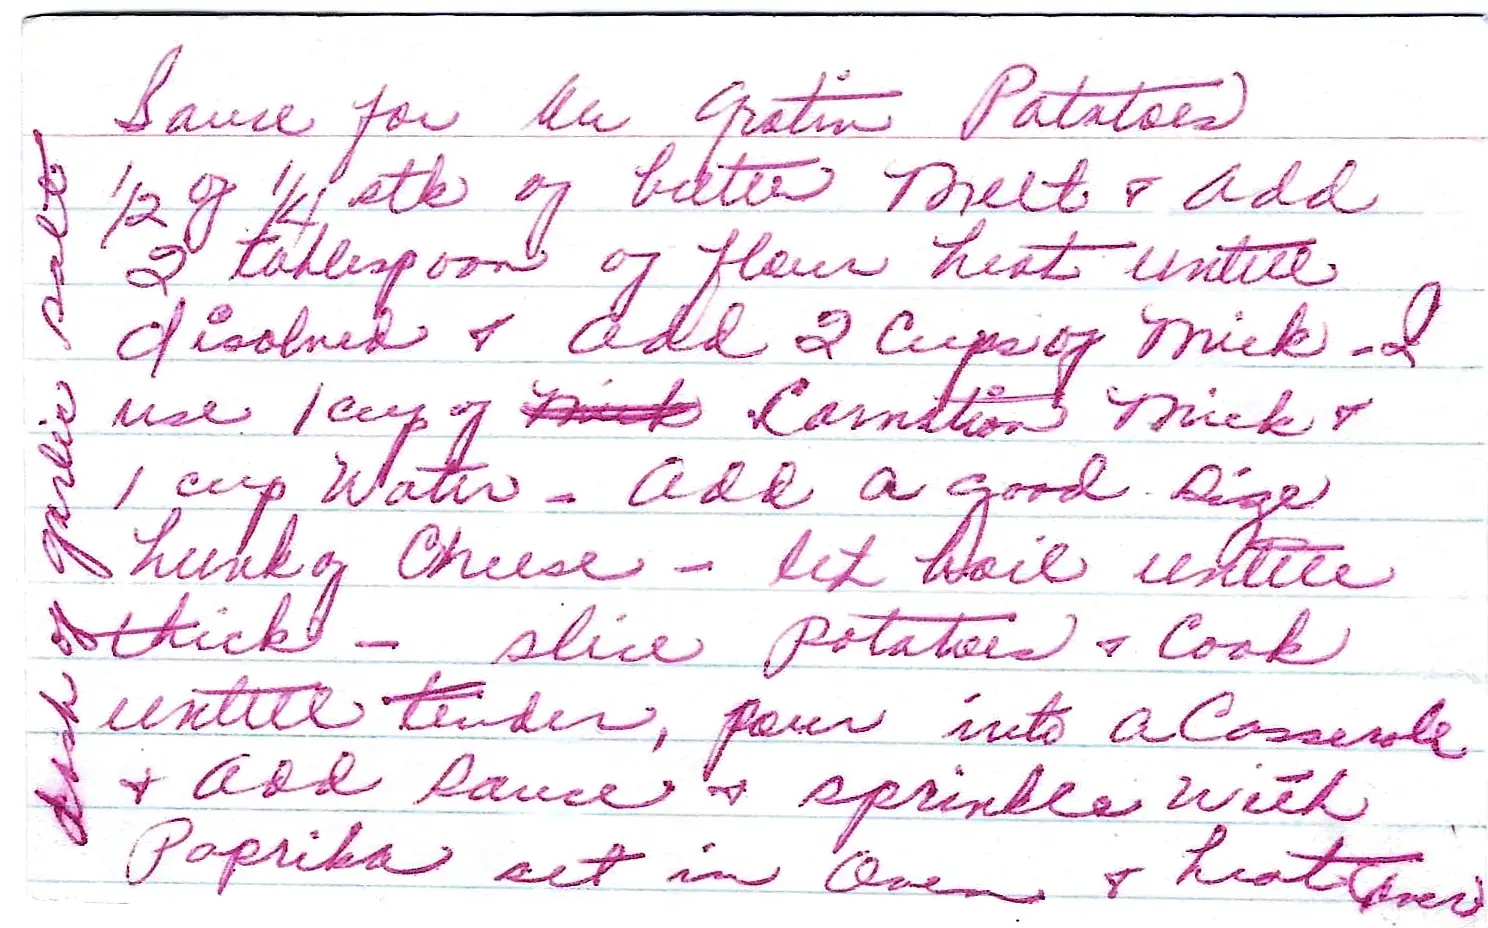 Sause for Au Gratin Potatoes
1/2 of 1/4 stk of butter Melt & add
2 tablespoon of flour heat untill
disolved & add 2 Cups of Milk - I
use 1 cup of Milk Carnation Milk &
1 cup Water - add a good size
hunk of Cheese - let boil untill
thick - slice potatoes & Cook
untill tender, pour into a Casserole
& add sause & sprinkle with
Paprika set in Oven & heat
dash of garlic salt